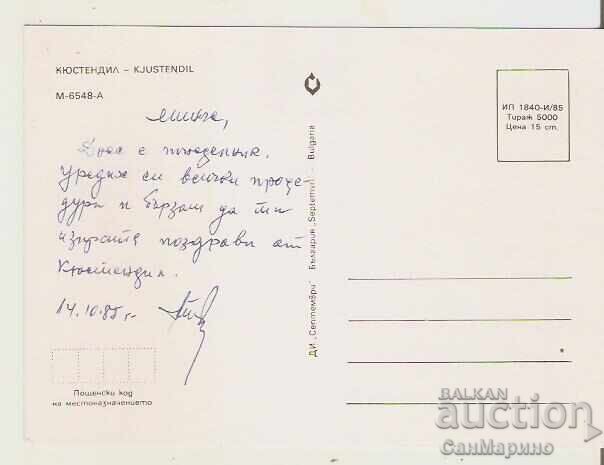 КЮСТЕНДИЛ – KJUSTENDIL
М-6548-А
Минче,
Днес е понеделник.
Уредих си всички проце-
дури и бързам да ти
изпратя поздрави от
Кюстендил.
14.10.85 г.
Пощенски код
на местоназначението
ДИ „Септември" България „Septemvri" – Bulgaria
ИП 1840-И/85
Тираж 5000
Цена 15 ст.
BALKAN
auction
СанМарино